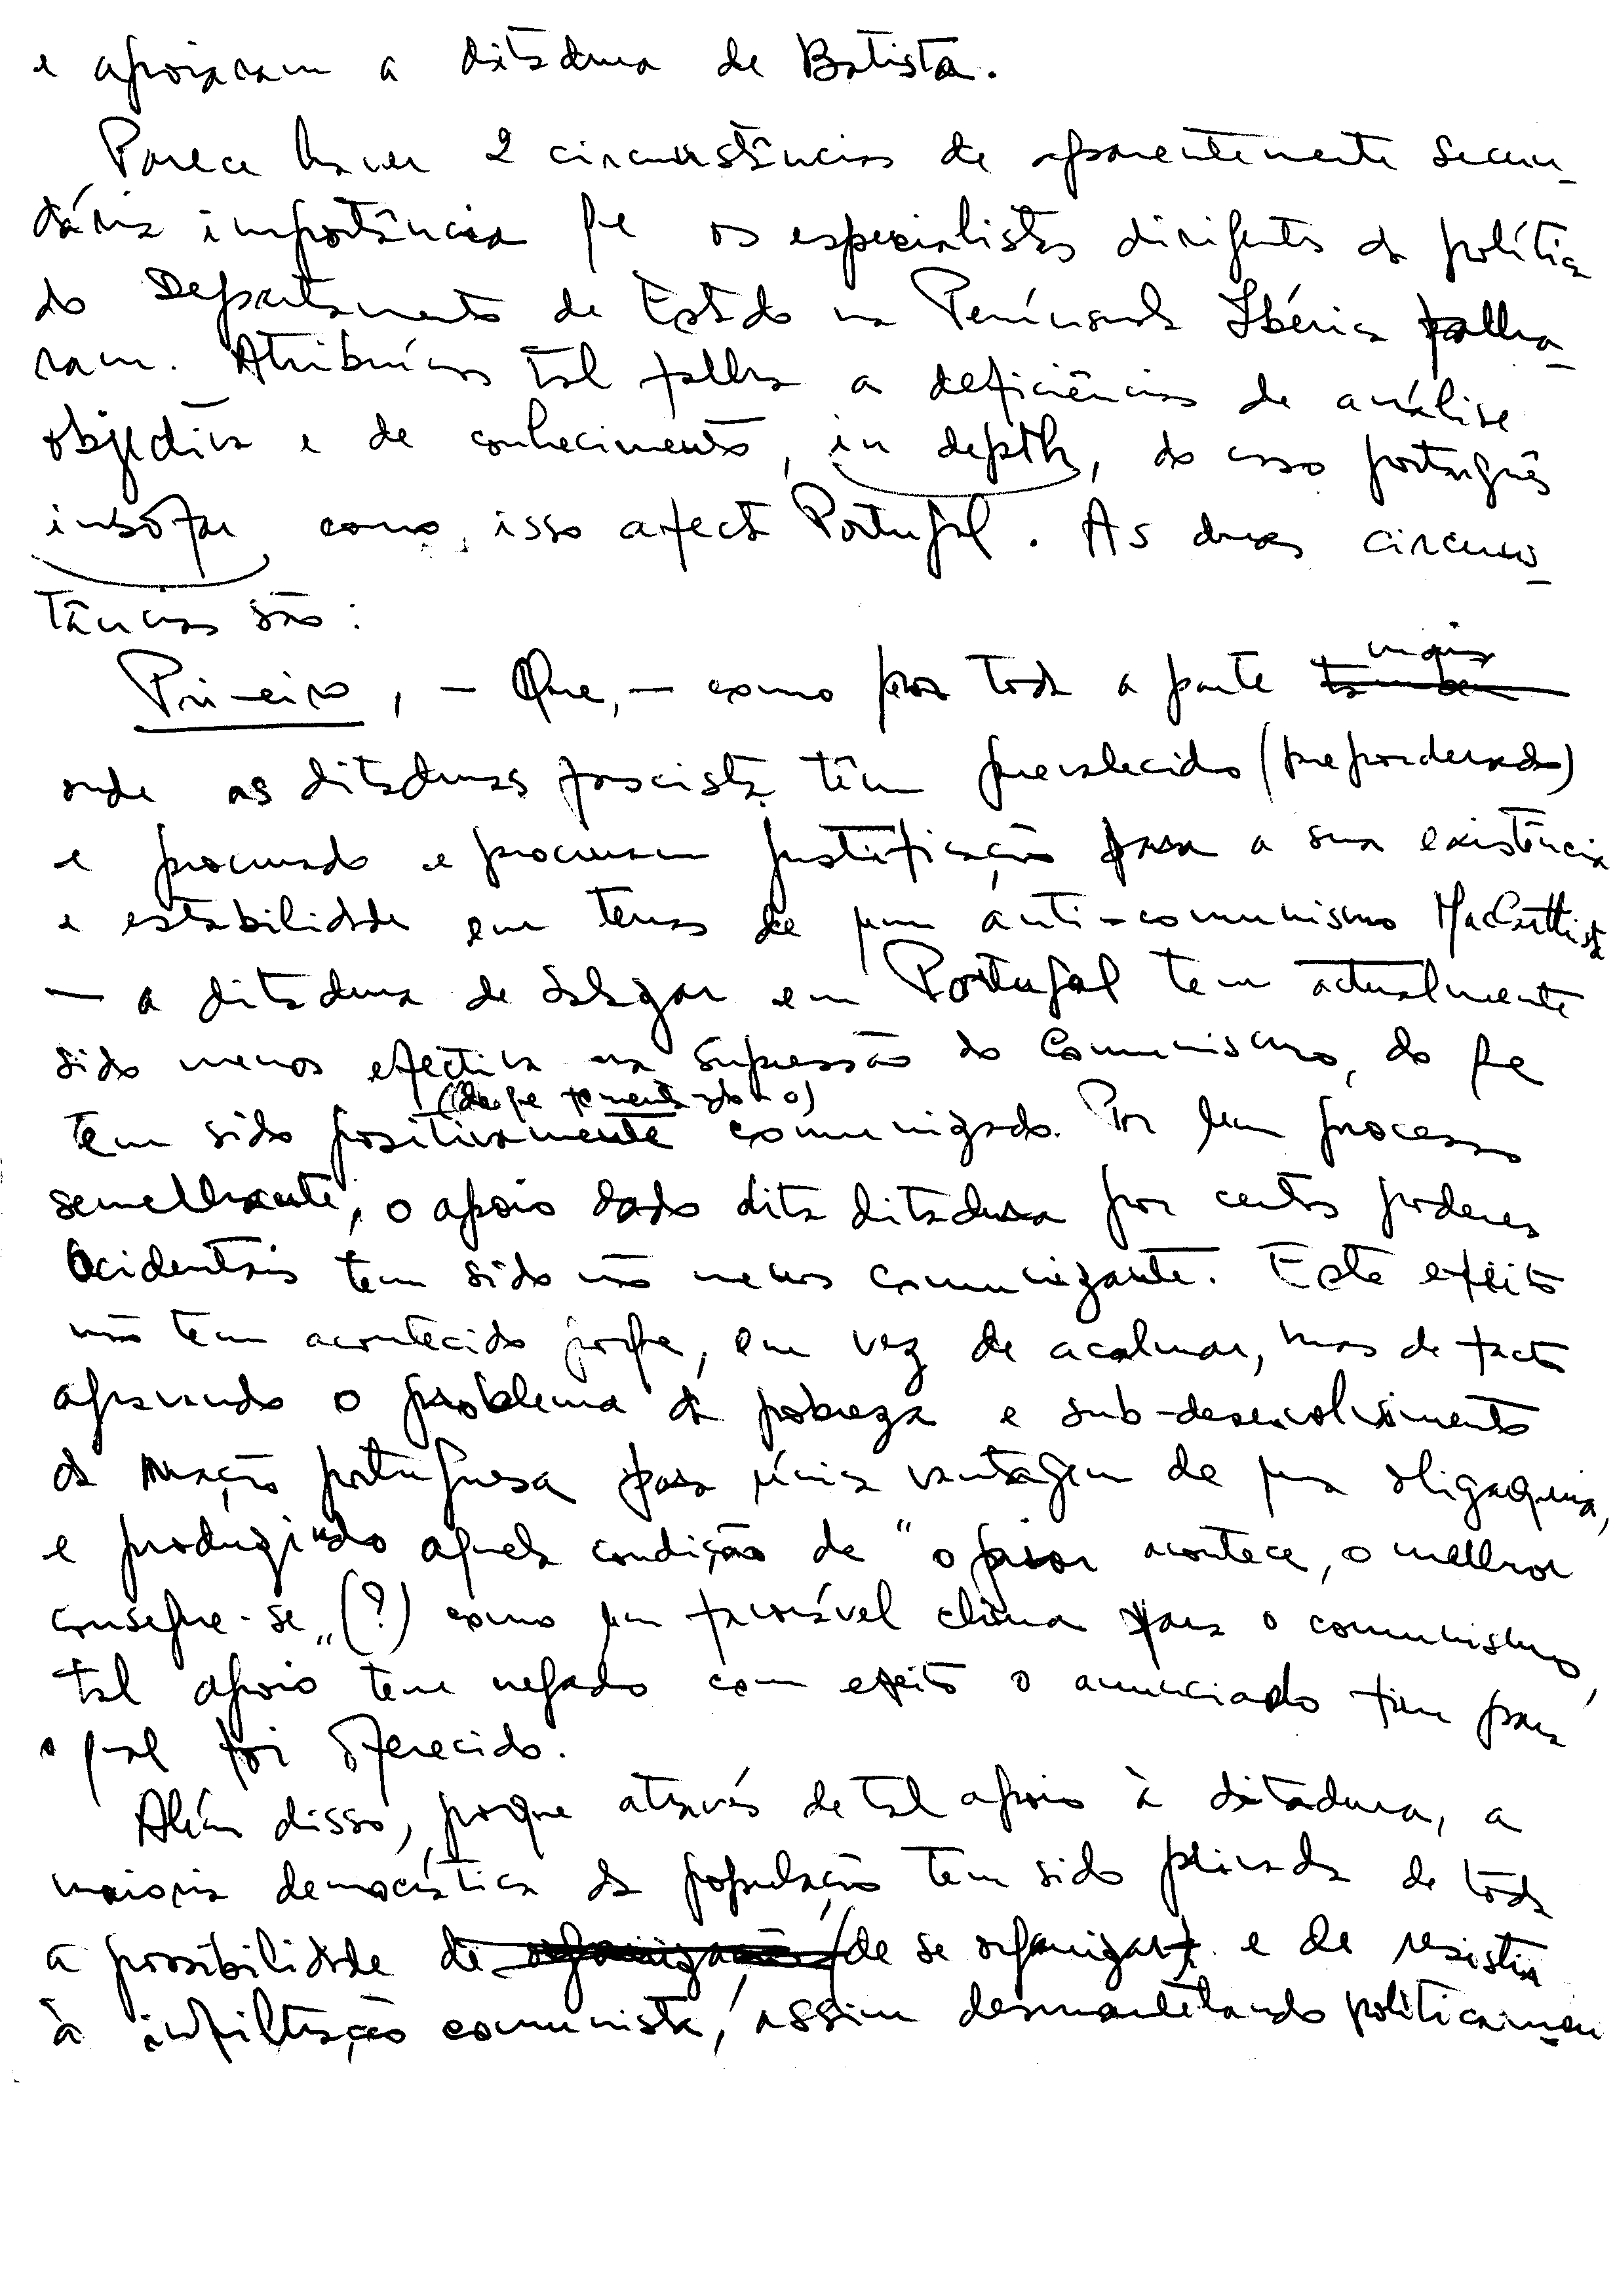 e apoiaram a ditadura de Batista.
Parece haver 2 circunstâncias de aparentemente secun-
dária importância qe os especialistas dirigentes da política
do Departamento de Estado na Península Ibérica falha-
ram. Atribuímos tal falha a deficiências de análise
objectiva e de conhecimento, in depth, do caso português
insofar como, isso afecta Portugal. As duas circuns-
tâncias são:
Primeiro, - Que, - como por toda a parte mais
onde as ditaduras fascistas têm prevalecido (preponderado)
e procurado e procuram justificação para a sua existência
e estabilidade em termos de um anti-comunismo MacCarthista
- a ditadura de Salazar em Portugal tem actualmente
sido menos efectiva na supressão do Comunismo, do qe
(do qe fomentando-o)
tem sido positivamente comunizado. Por um processo
semelhante, o apoio dado dita ditadura por certos poderes
Ocidentais tem sido não menos comunizante. Este efeito
não tem acontecido porqe, em vez de acalmar, mas de facto
agravando o problema da pobreza e sub-desenvolvimento
da nação portuguesa para única vantagem de uma oligarquia,
e produzindo aquela condição de "o pior acontece, o melhor
consegue-se" (?) como um favorável clima para o comunismo,
tal apoio tem negado com efeito o anunciado fim para
o qual foi oferecido.
Além disso, porque através de tal apoio à ditadura, a
maioria democrática da população tem sido privada de toda
a possibilidade de se organizar e de resistir
à infiltração comunista, assim desmantelando politicamen